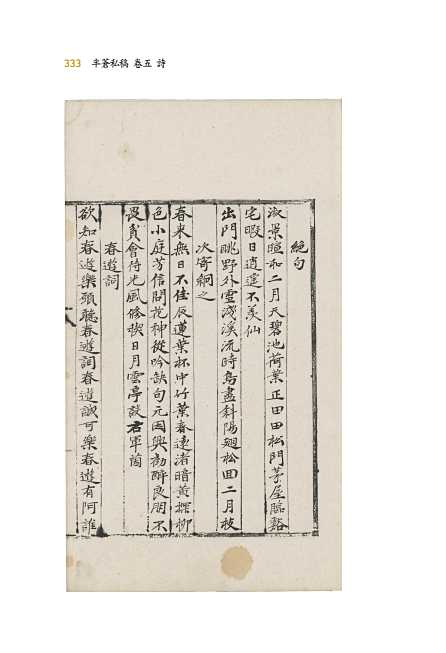 333 半蒼私稿 卷五 詩
絶句
淑景暄和二月天碧池荷葉正田田松門茅屋臨谿
宅暇日逍遥不羨仙
出門眺野外雪淺溪流時鳥盡斜陽廻松回二月枝
次寄綱之
春来無日不佳辰蓮葉杯中竹葉春遠渚暗黄摇柳
色小庭芳信問花神從吟缺句元因興勸醉良朋不
畏貧會待光風修禊日月雲亭敲右軍茵
春遊詞
欲知春遊樂須聽春遊詞春遊誠可樂春遊有阿誰